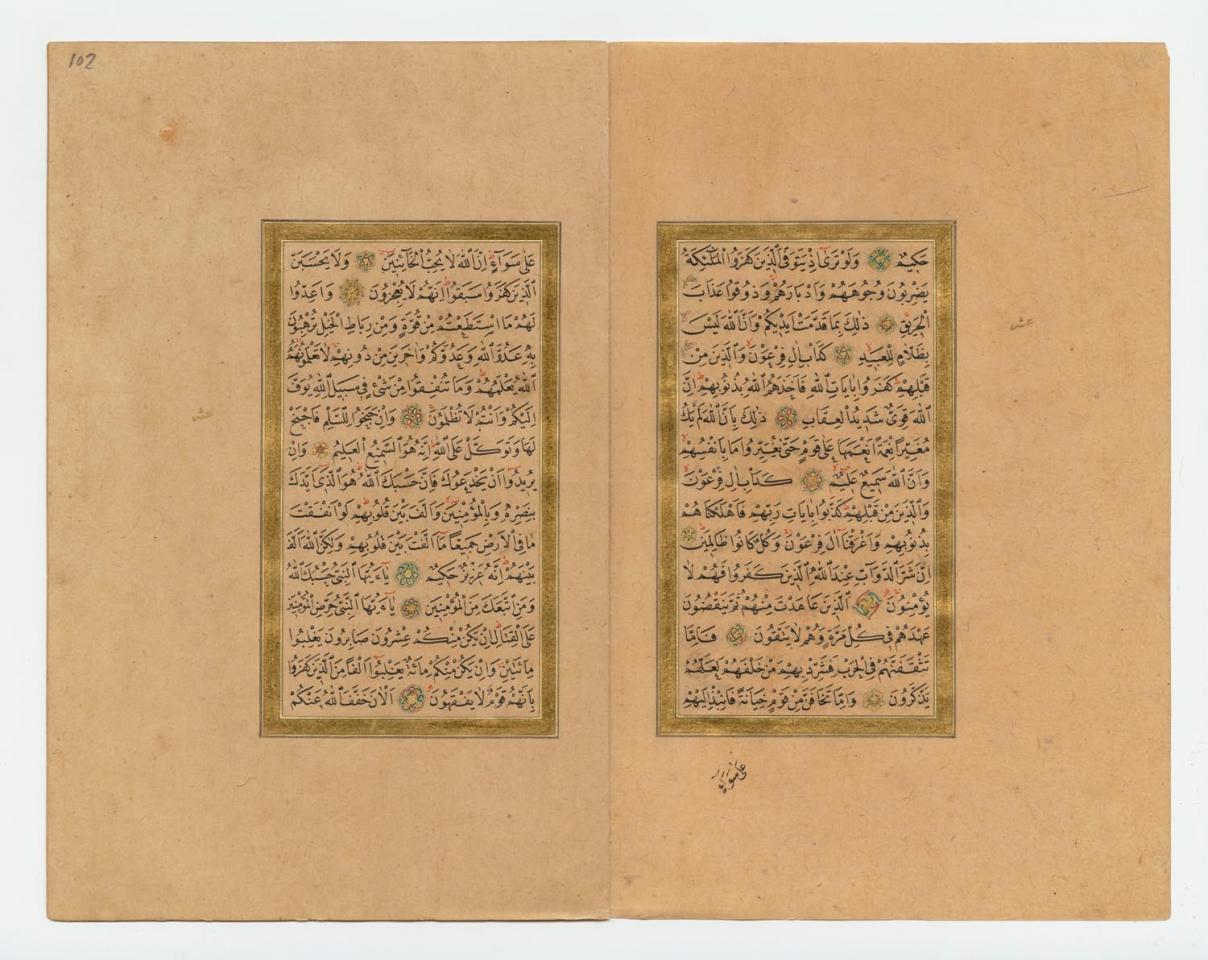 102
حَكِيمٌ وَلَوْ تَرٰى اِذْ يَتَوَفَّى الَّذِينَ كَفَرُوا الْمَلٰئِكَةُ
يَضْرِبُونَ وُجُوهَهُمْ وَاَدْبَارَهُمْ وَذُوقُوا عَذَابَ
الْحَرِيقِ ذٰلِكَ بِمَا قَدَّمَتْ اَيْدِيكُمْ وَاَنَّ اللّٰهَ لَيْسَ
بِظَلَّامٍ لِلْعَبِيدِ كَدَاْبِ اٰلِ فِرْعَوْنَ وَالَّذِينَ مِنْ
قَبْلِهِمْ كَفَرُوا بِاٰيَاتِ اللّٰهِ فَاَخَذَهُمُ اللّٰهُ بِذُنُوبِهِمْ اِنَّ
اللّٰهَ قَوِىٌّ شَدِيدُ الْعِقَابِ ذٰلِكَ بِاَنَّ اللّٰهَ لَمْ يَكُ
مُغَيِّرًا نِعْمَةً اَنْعَمَهَا عَلٰى قَوْمٍ حَتّٰى يُغَيِّرُوا مَا بِاَنْفُسِهِمْ
وَاَنَّ اللّٰهَ سَمِيعٌ عَلِيمٌ كَدَاْبِ اٰلِ فِرْعَوْنَ
وَالَّذِينَ مِنْ قَبْلِهِمْ كَذَّبُوا بِاٰيَاتِ رَبِّهِمْ فَاَهْلَكْنَاهُمْ
بِذُنُوبِهِمْ وَاَغْرَقْنَا اٰلَ فِرْعَوْنَ وَكُلٌّ كَانُوا ظَالِمِينَ
اِنَّ شَرَّ الدَّوَابِّ عِنْدَ اللّٰهِ الَّذِينَ كَفَرُوا فَهُمْ لَا
يُؤْمِنُونَ اَلَّذِينَ عَاهَدْتَ مِنْهُمْ ثُمَّ يَنْقُضُونَ
عَهْدَهُمْ فِى كُلِّ مَرَّةٍ وَهُمْ لَا يَتَّقُونَ فَاِمَّا
تَثْقَفَنَّهُمْ فِى الْحَرْبِ فَشَرِّدْ بِهِمْ مَنْ خَلْفَهُمْ لَعَلَّهُمْ
يَذَّكَّرُونَ وَاِمَّا تَخَافَنَّ مِنْ قَوْمٍ خِيَانَةً فَانْبِذْ اِلَيْهِمْ
عشر
على سواء
عَلٰى سَوَاءٍ اِنَّ اللّٰهَ لَا يُحِبُّ الْخَائِنِينَ وَلَا يَحْسَبَنَّ
الَّذِينَ كَفَرُوا سَبَقُوا اِنَّهُمْ لَا يُعْجِزُونَ وَاَعِدُّوا
لَهُمْ مَا اسْتَطَعْتُمْ مِنْ قُوَّةٍ وَمِنْ رِبَاطِ الْخَيْلِ تُرْهِبُونَ
بِهِ عَدُوَّ اللّٰهِ وَعَدُوَّكُمْ وَاٰخَرِينَ مِنْ دُونِهِمْ لَا تَعْلَمُونَهُمْ
اَللّٰهُ يَعْلَمُهُمْ وَمَا تُنْفِقُوا مِنْ شَىْءٍ فِى سَبِيلِ اللّٰهِ يُوَفَّ
اِلَيْكُمْ وَاَنْتُمْ لَا تُظْلَمُونَ وَاِنْ جَنَحُوا لِلسَّلْمِ فَاجْنَحْ
لَهَا وَتَوَكَّلْ عَلَى اللّٰهِ اِنَّهُ هُوَ السَّمِيعُ الْعَلِيمُ وَاِنْ
يُرِيدُوا اَنْ يَخْدَعُوكَ فَاِنَّ حَسْبَكَ اللّٰهُ هُوَ الَّذِى اَيَّدَكَ
بِنَصْرِهِ وَبِالْمُؤْمِنِينَ وَاَلَّفَ بَيْنَ قُلُوبِهِمْ لَوْ اَنْفَقْتَ
مَا فِى الْاَرْضِ جَمِيعًا مَا اَلَّفْتَ بَيْنَ قُلُوبِهِمْ وَلٰكِنَّ اللّٰهَ اَلَّفَ
بَيْنَهُمْ اِنَّهُ عَزِيزٌ حَكِيمٌ يَا اَيُّهَا النَّبِىُّ حَسْبُكَ اللّٰهُ
وَمَنِ اتَّبَعَكَ مِنَ الْمُؤْمِنِينَ يَا اَيُّهَا النَّبِىُّ حَرِّضِ الْمُؤْمِنِينَ
عَلَى الْقِتَالِ اِنْ يَكُنْ مِنْكُمْ عِشْرُونَ صَابِرُونَ يَغْلِبُوا
مِائَتَيْنِ وَاِنْ يَكُنْ مِنْكُمْ مِائَةٌ يَغْلِبُوا اَلْفًا مِنَ الَّذِينَ كَفَرُوا
بِاَنَّهُمْ قَوْمٌ لَا يَفْقَهُونَ اَلْاٰنَ خَفَّفَ اللّٰهُ عَنْكُمْ
عشر